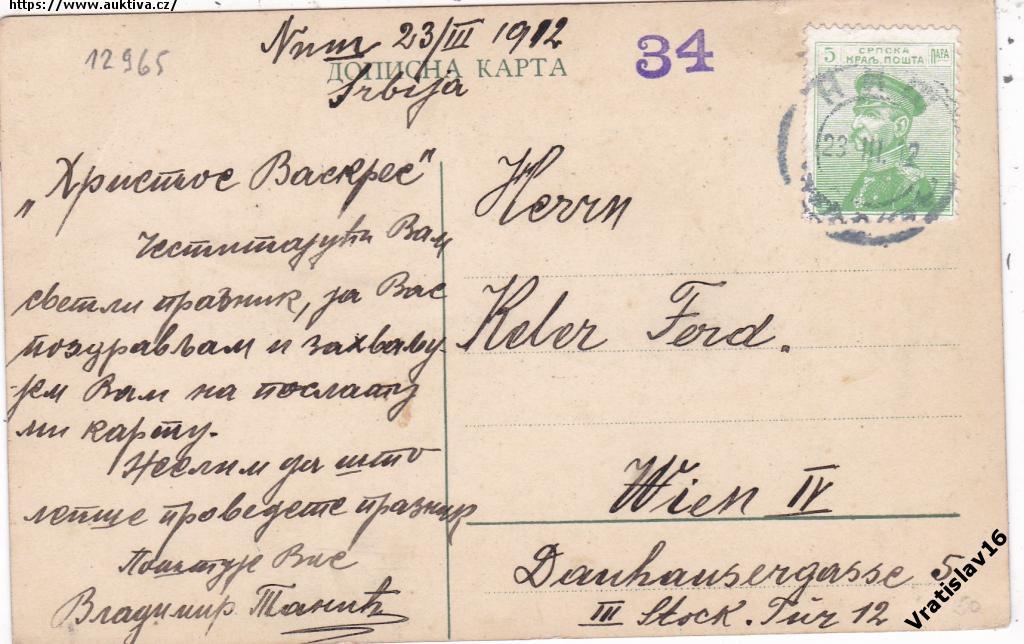 https://www.auktiva.cz/
12965
Ниш 23/III 1912
ДОПИСНА КАРТА
Srbija
34
5 СРПСКА ПАРА
КРАЉ. ПОШТА
23 III. 2
„Христос Васкрес"
Честитајући Вам
светли празник, ја Вас
поздрављам и захваљу-
јем Вам на послату
ми карту.
Желим да што
лепше проведете празник
Поштује Вас
Владимир Танић
Herrn
Keler Ferd.
Wien IV
Danhausergasse 5
III Stock. Tür 12
Vratislav16